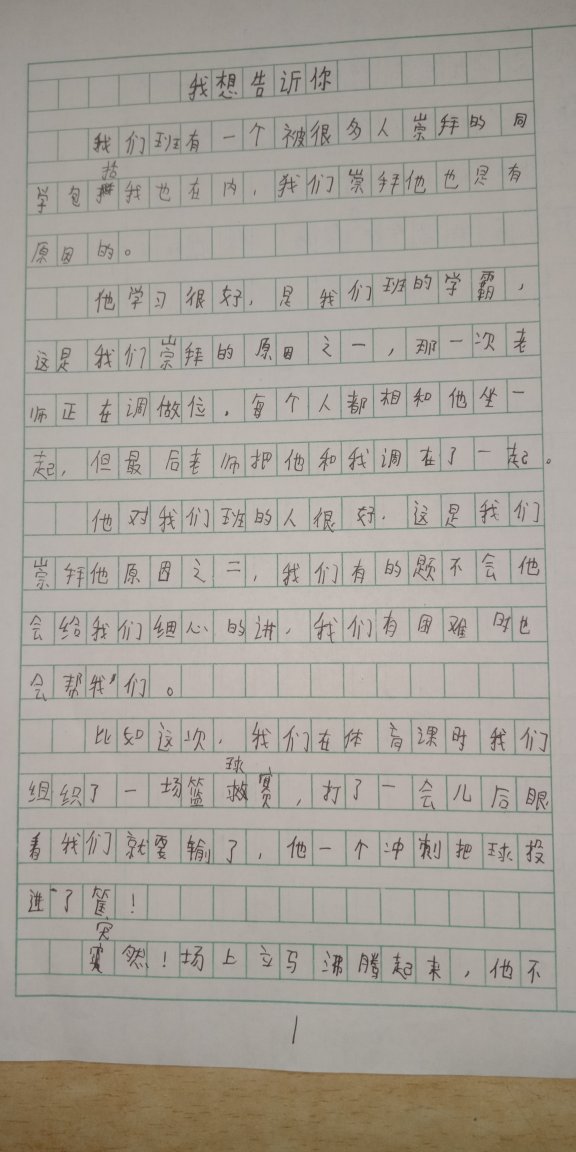 我想告诉你
我们班有一个被很多人崇拜的同
学包括我也在内，我们崇拜他也是有
原因的。
他学习很好，是我们班的学霸，
这是我们崇拜的原因之一，那一次老
师正在调做位，每个人都相和他坐一
起，但最后老师把他和我调在了一起。
他对我们班的人很好，这是我们
崇拜他原因之二，我们有的题不会他
会给我们细心的讲，我们有困难时也
会帮我们。
比如这次，我们在体育课时我们
组织了一场篮球赛，打了一会儿后眼
看我们就要输了，他一个冲刺把球投
进了筐！
突然！场上立马沸腾起来，他不
1